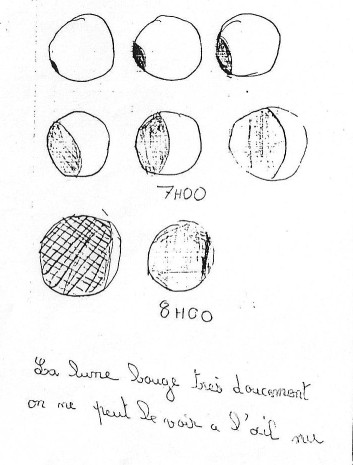 7H00
8H00
La lune bouge très doucement
on ne peut le voir a l'œil nu